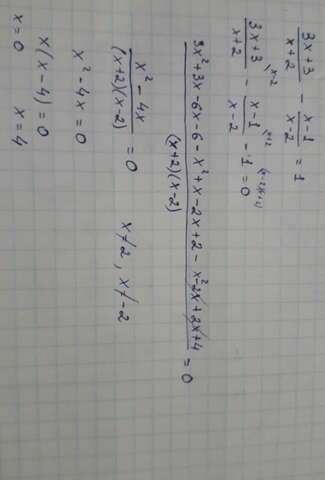 \frac{3x+3}{x+2} - \frac{x-1}{x-2} = 1
\frac{3x+3}{x+2}^{\backslash x-2} - \frac{x-1}{x-2}^{\backslash x+2} - 1^{\backslash (x-2)(x+2)} = 0
\frac{3x^2+3x-6x-6-x^2+x-2x+2-x^2-2x+2x+4}{(x+2)(x-2)} = 0
\frac{x^2-4x}{(x+2)(x-2)} = 0 x≠2, x≠-2
x^2-4x=0
x(x-4)=0
x=0 x=4